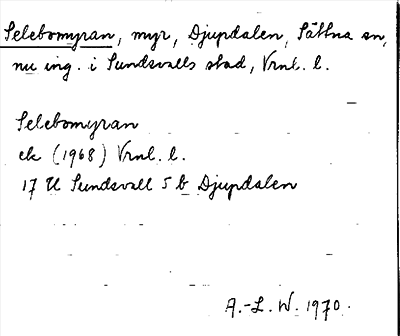 Selebomyran, myr, Djupdalen, Sättna sn,
nu ing. i Sundsvalls stad, Vrnl. l.
Selebomyran
ek (1968) Vrnl. l.
17 U Sundsvall 5 b Djupdalen
A.-L. W. 1970.